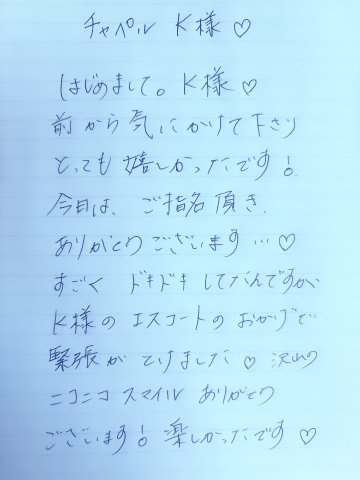 チャペル K様♡
はじめまして。K様♡
前から気にかけて下さり
とっても嬉しかったです!
今日は、ご指名頂き、
ありがとうございます…♡
すごく ドキドキしてたんですが、
K様のエスコートのおかげで
緊張が とけました♡ 沢山の
ニコニコ スマイル ありがとう
ございます! 楽しかったです♡